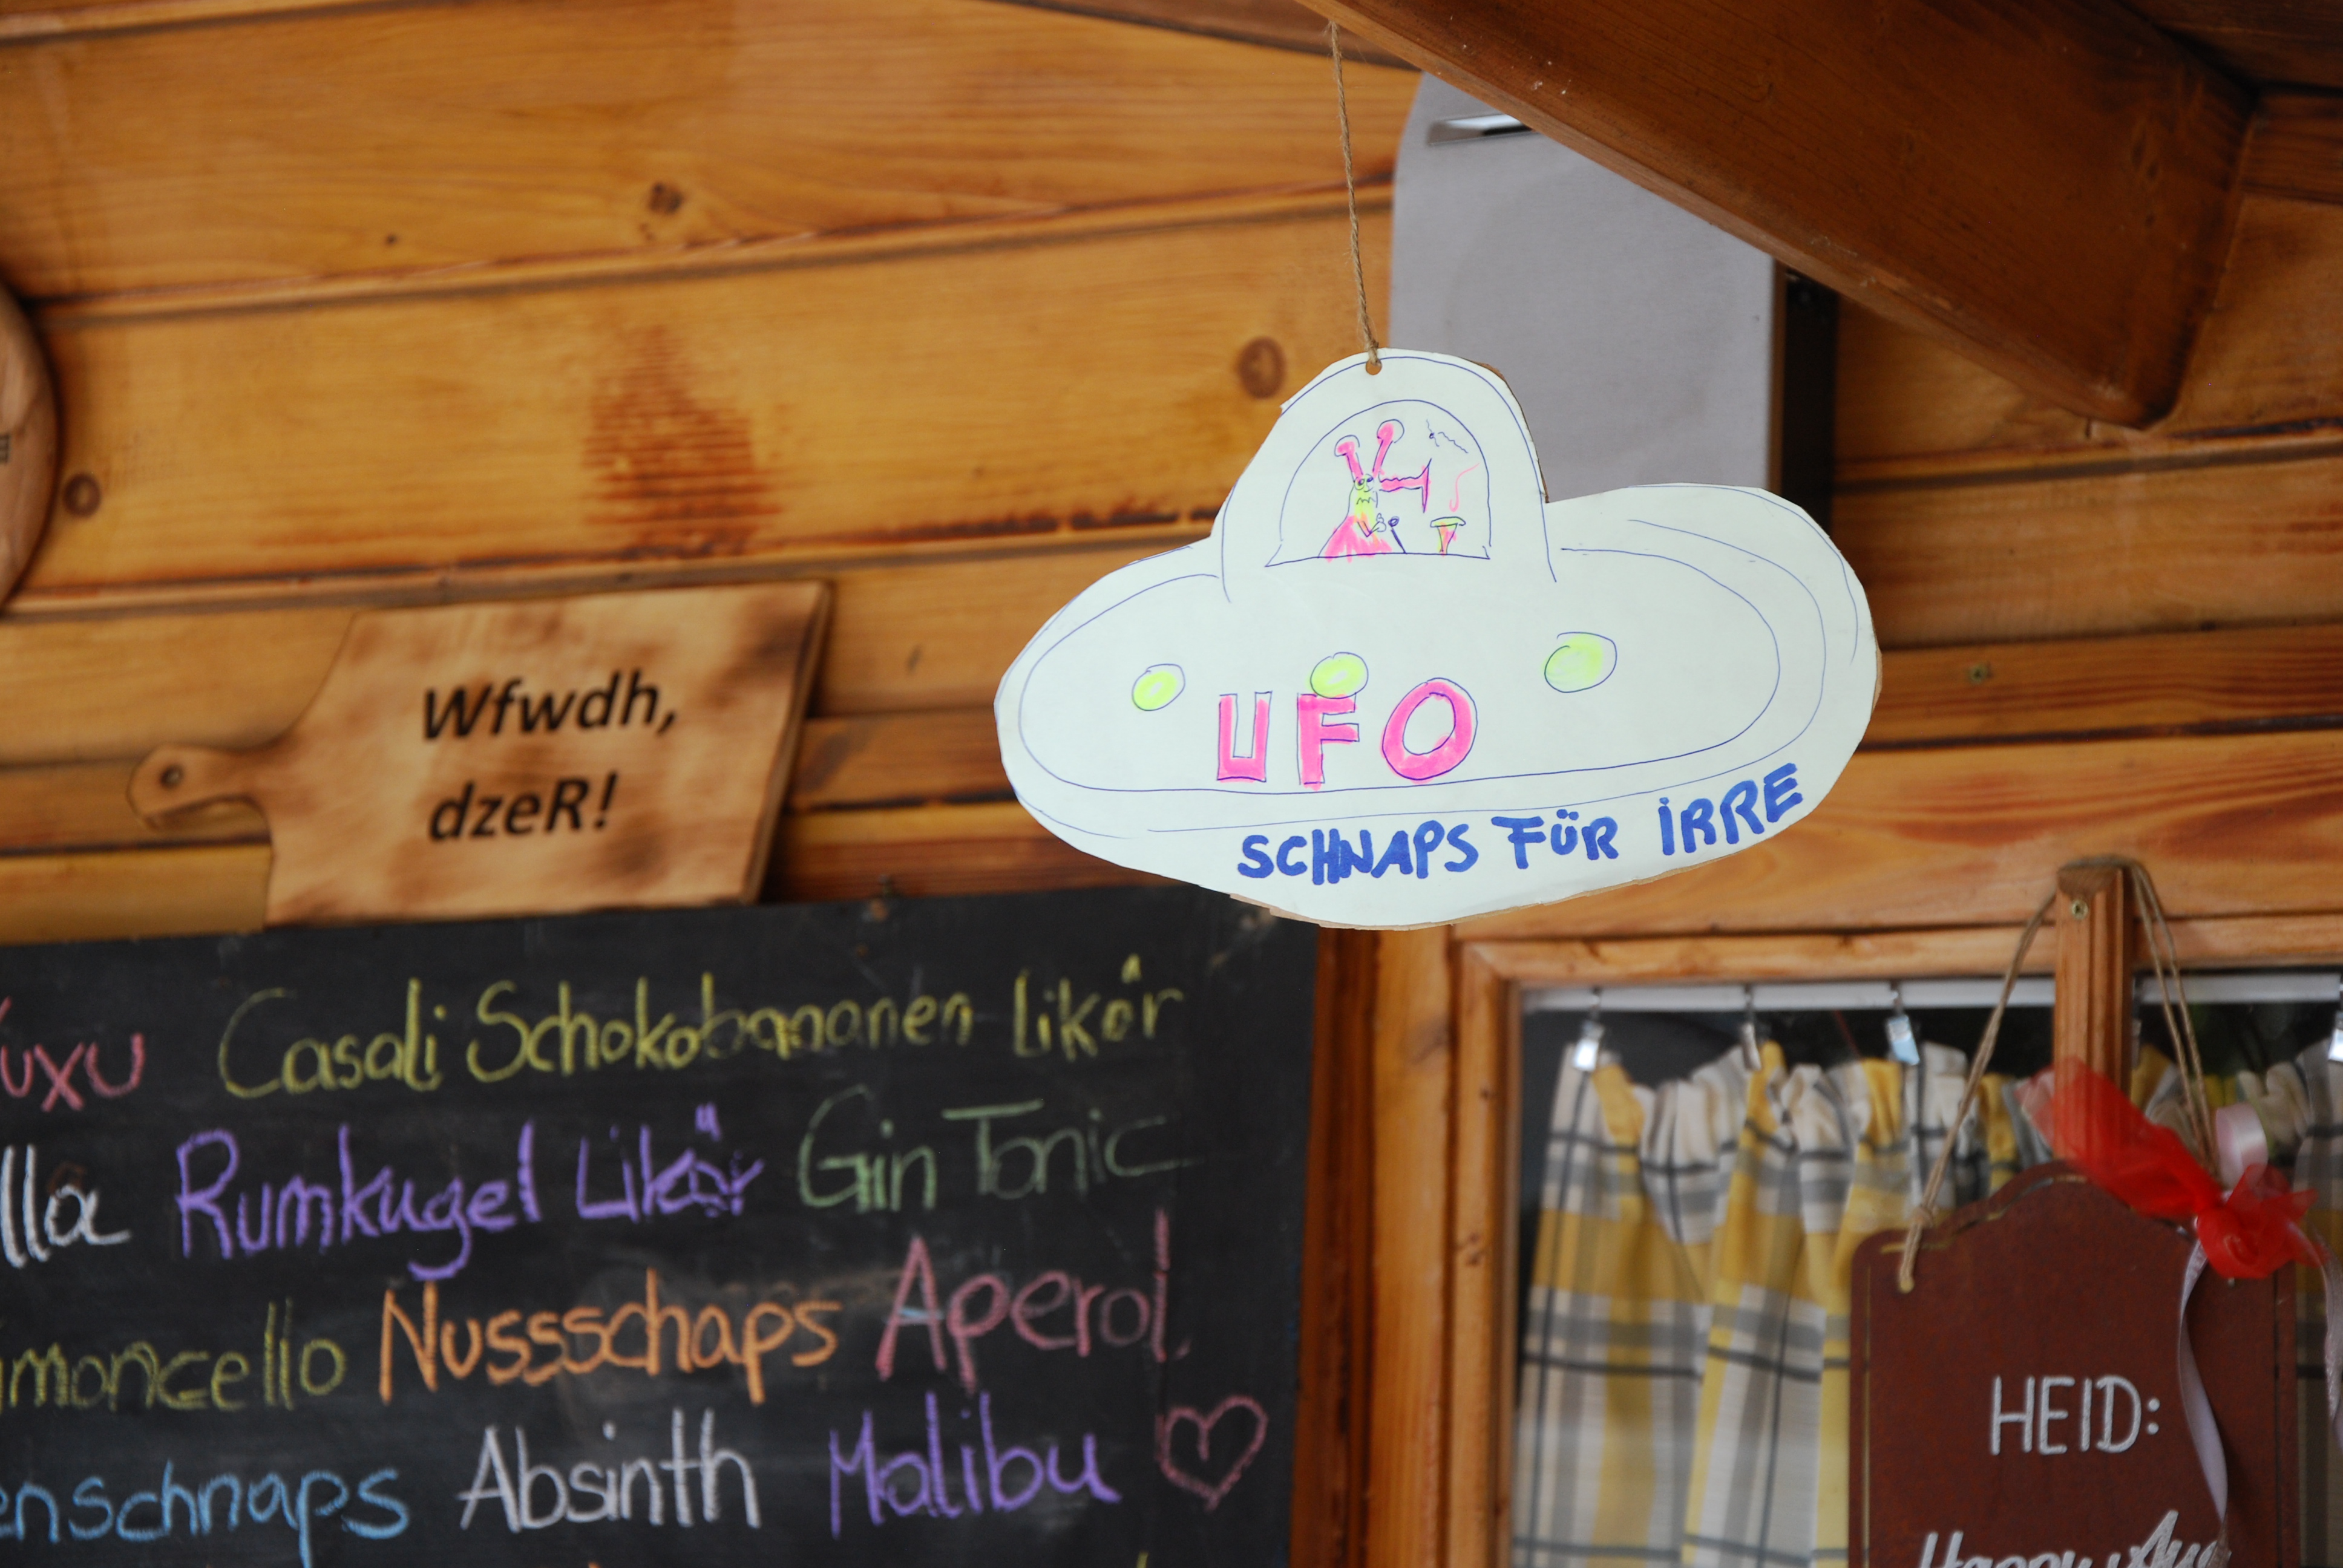 UFO
SCHNAPS FÜR IRRE
Wfwdh,
dzeR!
uxu Casali Schokobananen Likör
lla Rumkugel Likör Gin Tonic
imoncello Nussschaps Aperol
enschnaps Absinth Malibu
HEID:
Happy